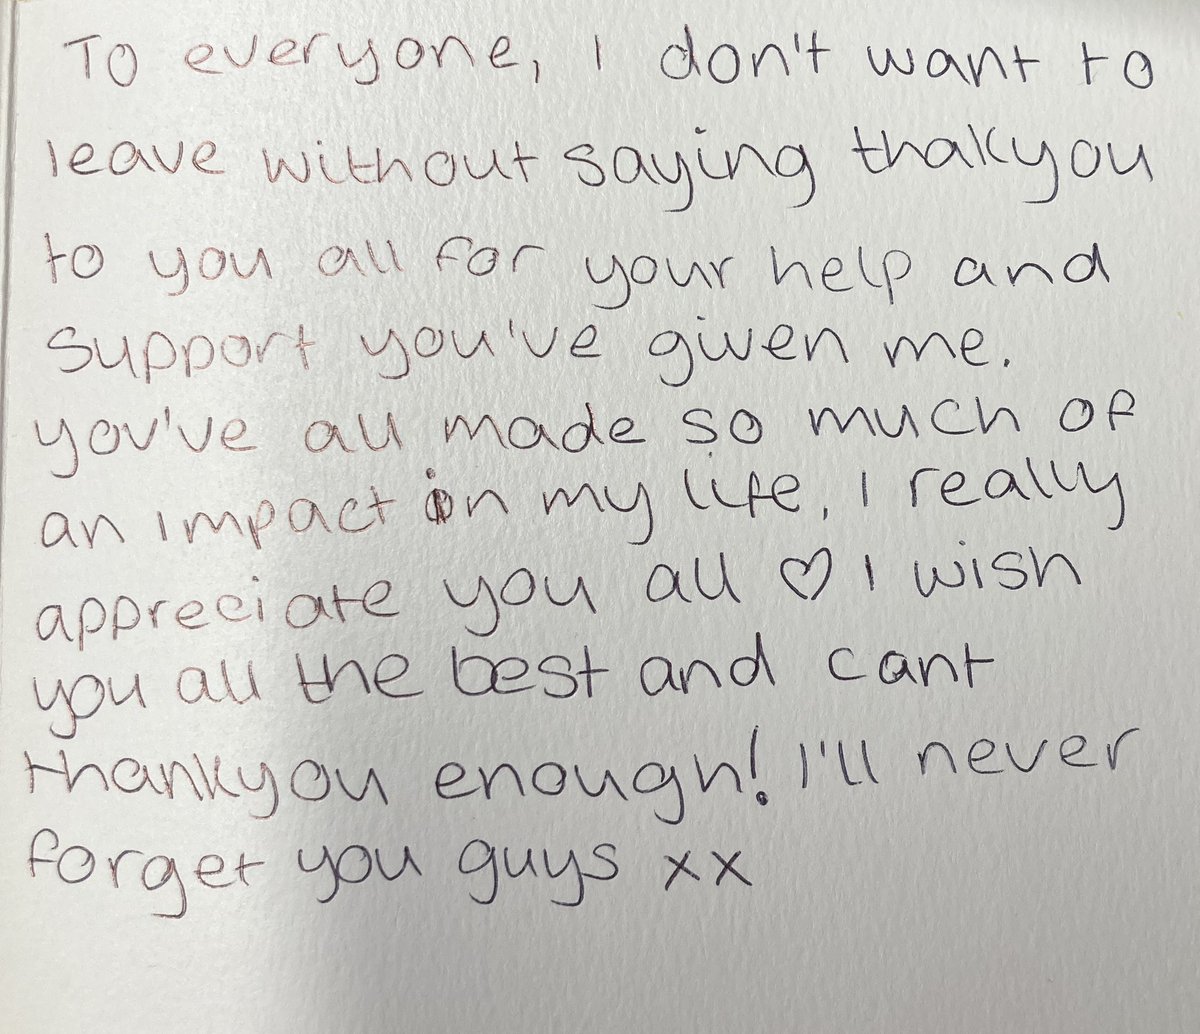 To everyone, I don't want to
leave without saying thakyou
to you all for your help and
support you've given me.
you've all made so much of
an impact in my life, I really
appreciate you all ♡ I wish
you all the best and cant
thankyou enough! I'll never
forget you guys xx